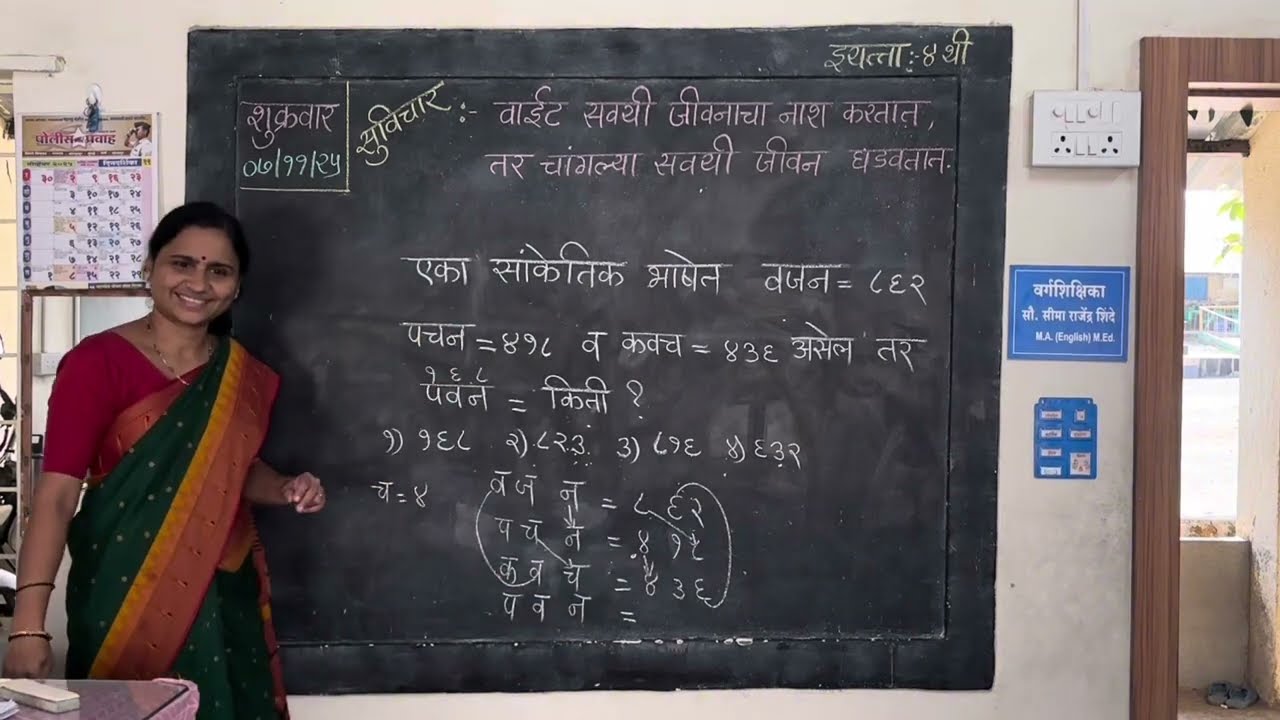 इयत्ता:-४थी
शुक्रवार
०७/११/२५
सुविचार :- वाईट सवयी जीवनाचा नाश करतात,
तर चांगल्या सवयी जीवन घडवतात.
एका सांकेतिक भाषेत वजन = ८६२
पचन = ४१८ व कवच = ४३६ असेल तर
१६८
पवन = किती ?
१) १६८ २) ८२३ ३) ८१६ ४) ६३२
च = ४
व ज न = ८ ६ २
प च न = ४ १ ८
क व च = ४ ३ ६
प व न =
पोलीस प्रवाह
वर्गशिक्षिका
सौ. सीमा राजेंद्र शिंदे
M.A. (English) M.Ed.